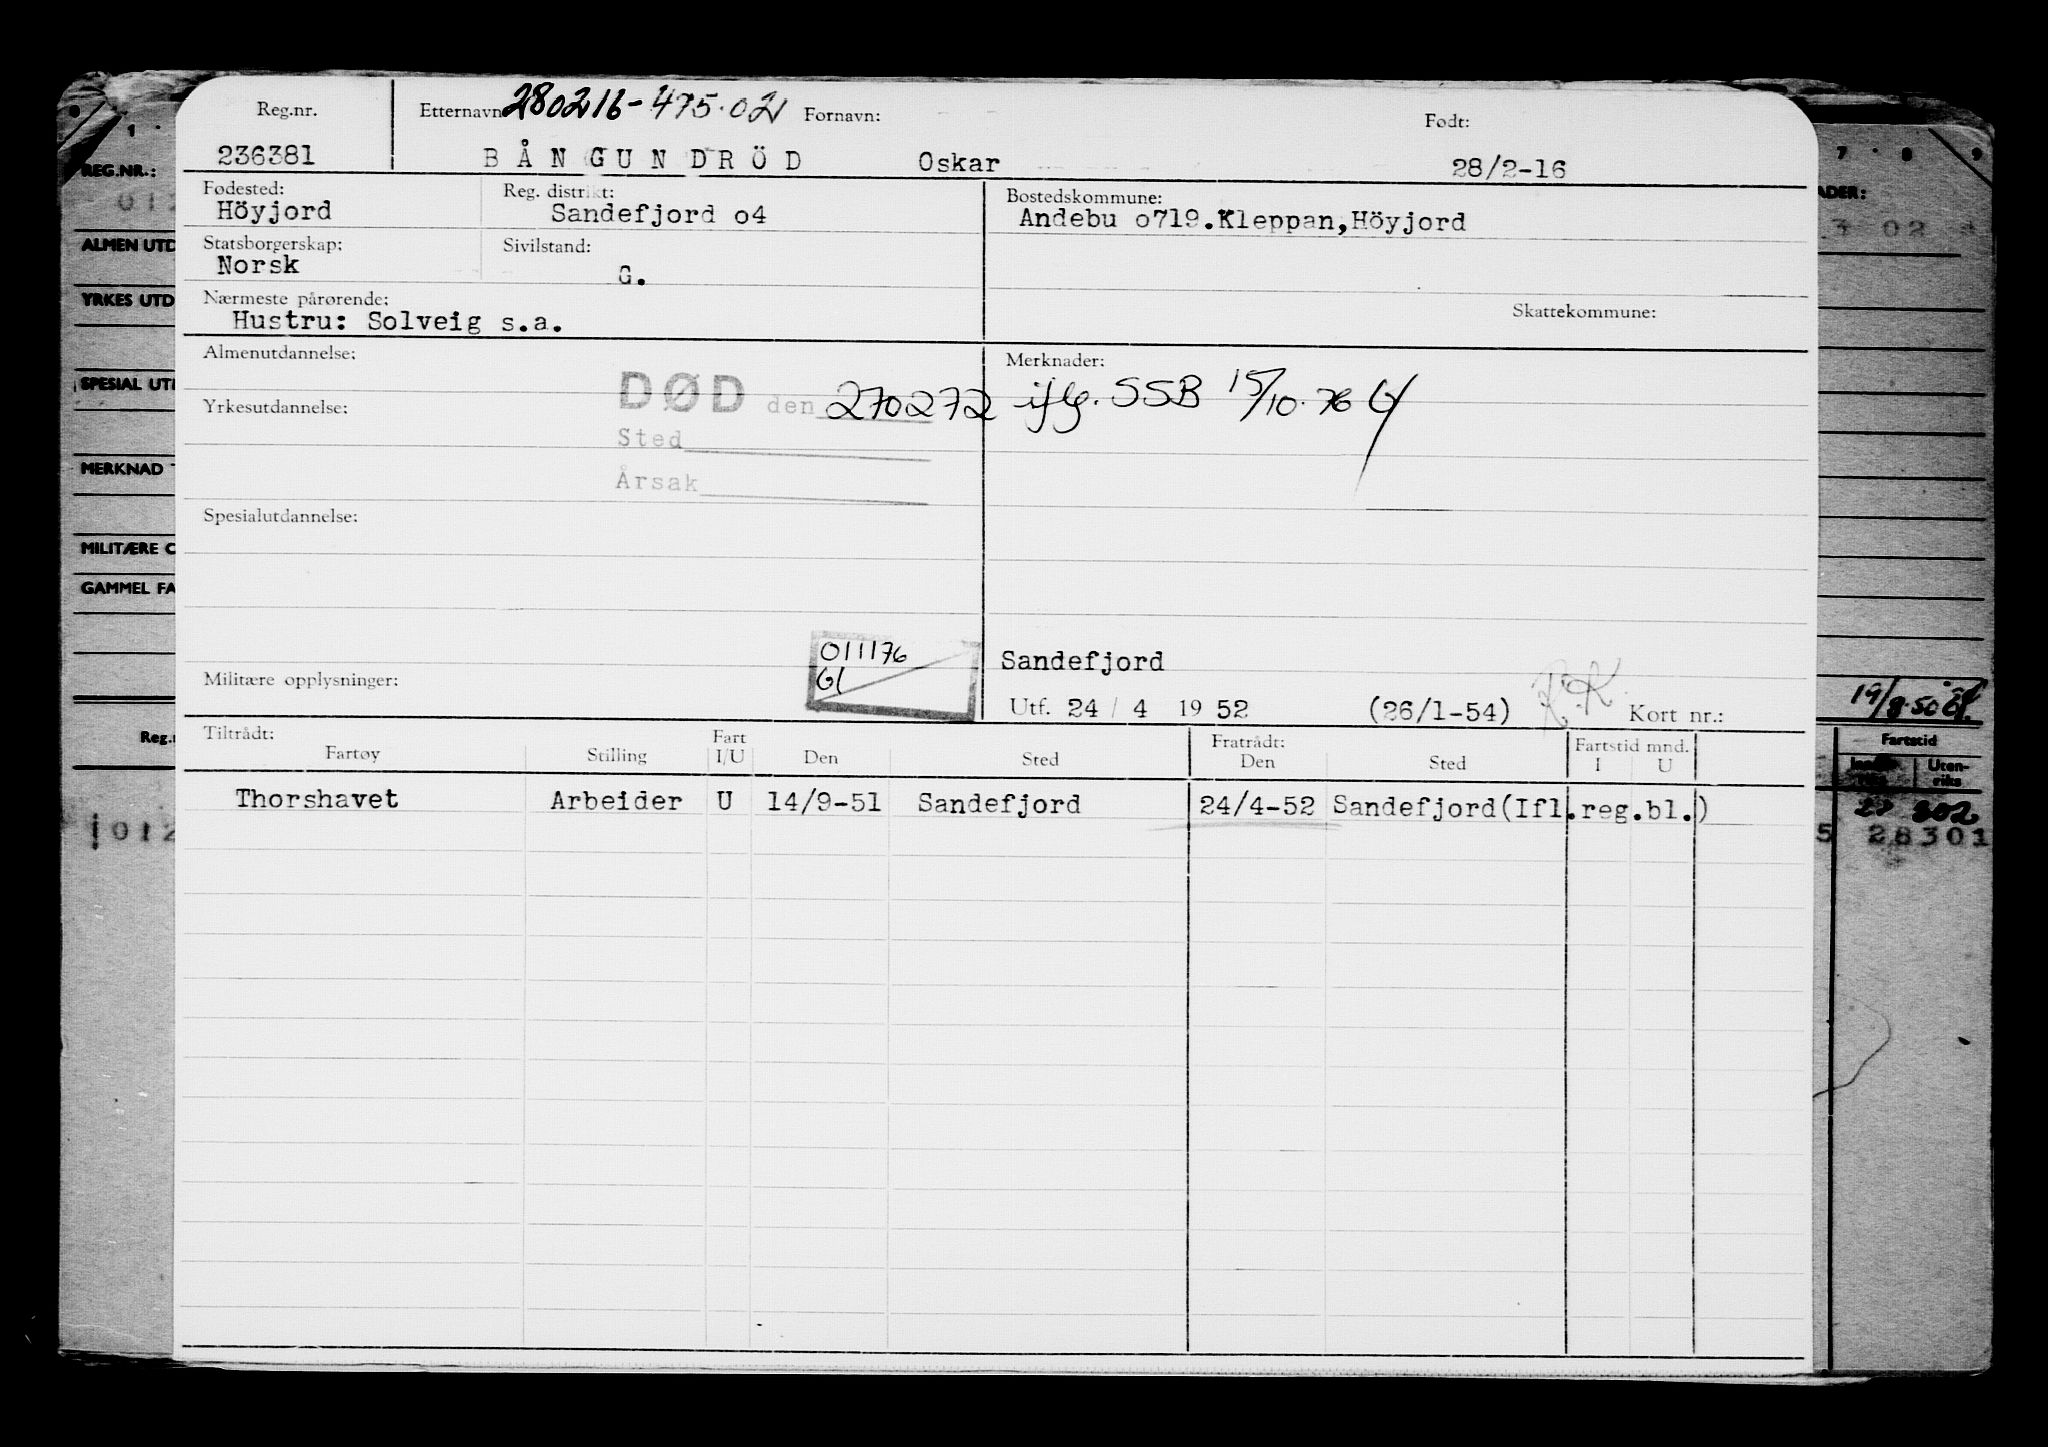 Reg.nr. Etternavn 280216-475.02 Fornavn: Født:
236381 BÅNGUNDRÖD Oskar 28/2-16
Fødested: Reg. distrikt: Bostedskommune:
Höyjord Sandefjord o4 Andebu o719.Kleppan,Höyjord
Statsborgerskap: Sivilstand:
Norsk G.
Nærmeste pårørende: Skattekommune:
Hustru: Solveig s.a.
Almenutdannelse: Merknader:
DØD den 270272 iflg. SSB 15/10.76
Yrkesutdannelse:
Sted
Årsak
Spesialutdannelse:
011176
Gl
Sandefjord
Militære opplysninger:
Utf. 24 / 4 19 52 (26/1-54) Kort nr.:
Tiltrådt: Fart Fratrådt: Fartstid mnd.
Fartøy Stilling I/U Den Sted Den Sted I U
Thorshavet Arbeider U 14/9-51 Sandefjord 24/4-52 Sandefjord(Ifl.reg.bl.)
1
REG.NR.:
012
ALMEN UTD
YRKES UTD
SPESIAL UT
MERKNAD
MILITÆRE
GAMMEL FA
Reg.
012
7 8 9
ADER:
02
19/8-50
Fartstid
Uten-
riks
28301